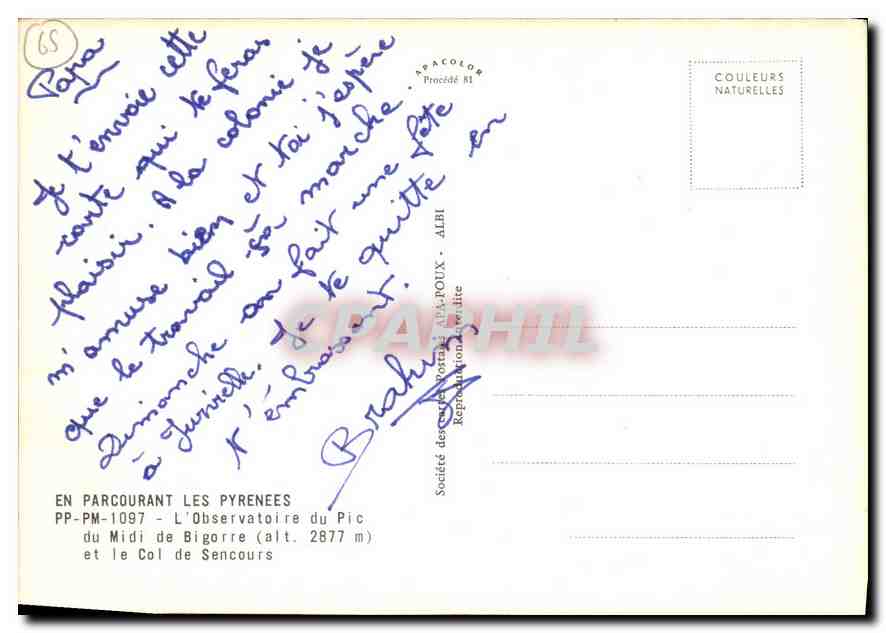 65
Papa
Je t'envoie cette
carte qui te feras
plaisir. A la colonie je
m'amuse bien et toi j'espère
que le travail sa marche.
Dimanche on fait une fête
à . Je te quitte en
t'embrassant.
Brahim
APACOLOR
Procédé 81
COULEURS
NATURELLES
Société des cartes Postales APA-POUX - ALBI
Reproduction interdite
CPAPHIL
EN PARCOURANT LES PYRENEES
PP-PM-1097 - L'Observatoire du Pic
du Midi de Bigorre (alt. 2877 m)
et le Col de Sencours